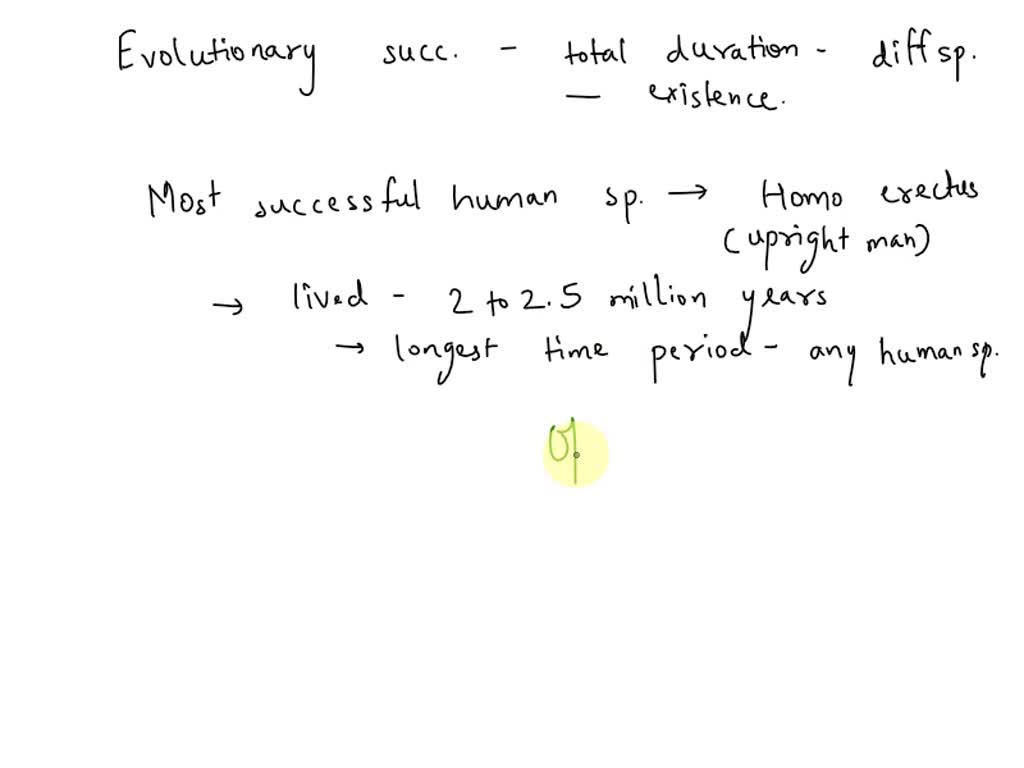 Evolutionary succ. - total duration - diff sp.
— existence.
Most successful human sp. → Homo erectus
(upright man)
→ lived - 2 to 2.5 million years
→ longest time period - any human sp.
Op